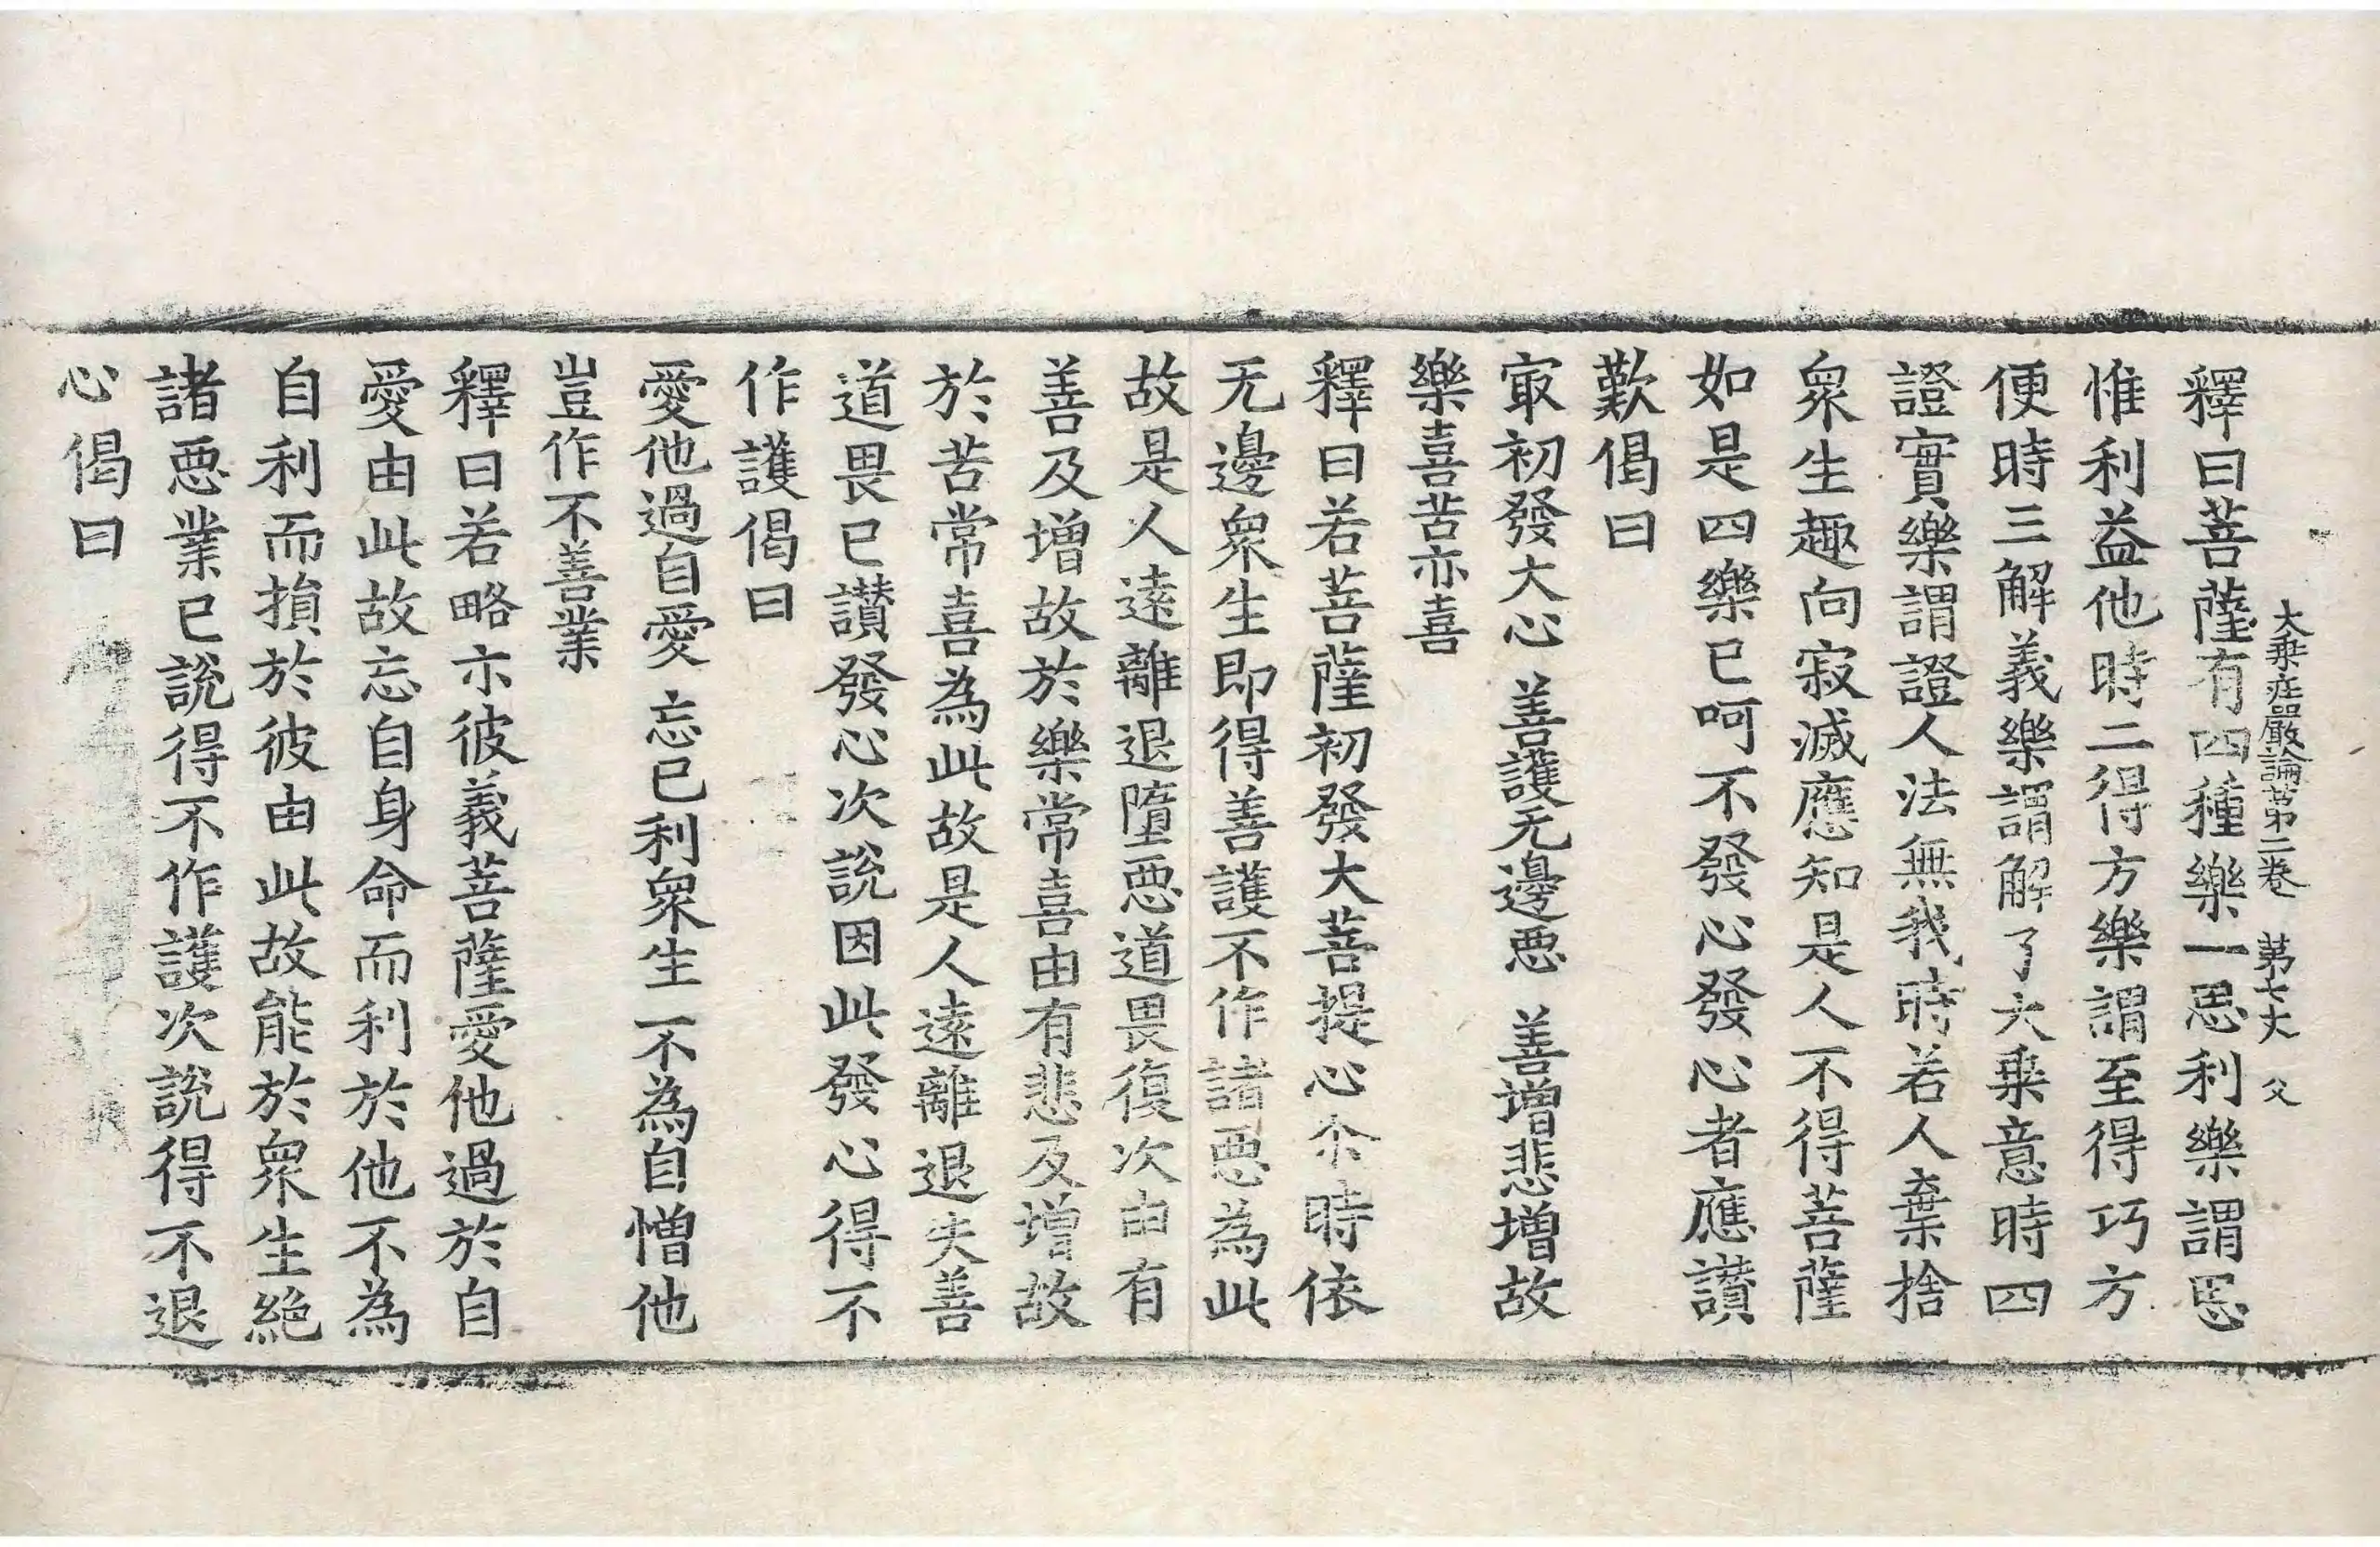 大乗庄嚴論苐二卷　苐七丈　父
釋曰菩薩有四種樂一思利樂謂思
惟利益他時二得方樂謂至得巧方
便時三解義樂謂解了大乗意時四
證實樂謂證人法無我時若人棄捨
衆生趣向寂滅應知是人不得菩薩
如是四樂已呵不發心發心者應讃
歎偈曰
㝡初發大心　善護无邊惡　善增悲增故
樂喜苦亦喜
釋曰若菩薩初發大菩提心尒時依
无邊衆生即得善護不作諸惡為此
故是人遠離退墮惡道畏復次由有
善及增故於樂常喜由有悲及增故
於苦常喜為此故是人遠離退失善
道畏已讃發心次說因此發心得不
作護偈曰
愛他過自愛　忘已利衆生　不為自憎他
豈作不善業
釋曰若略示彼義菩薩愛他過於自
愛由此故忘自身命而利於他不為
自利而損於彼由此故能於衆生絕
諸惡業已說得不作護次說得不退
心偈曰